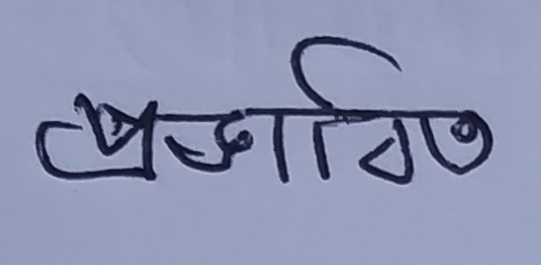 প্রভাবিত